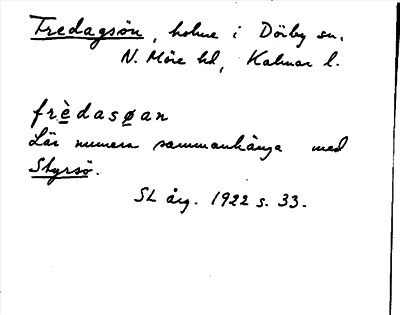 Fredagsön, holme i Dörby sn.
N. Möre hd, Kalmar l.
frèdasøan
Lär numera sammanhänga med
Styrsö.
SL årg. 1922 s. 33.